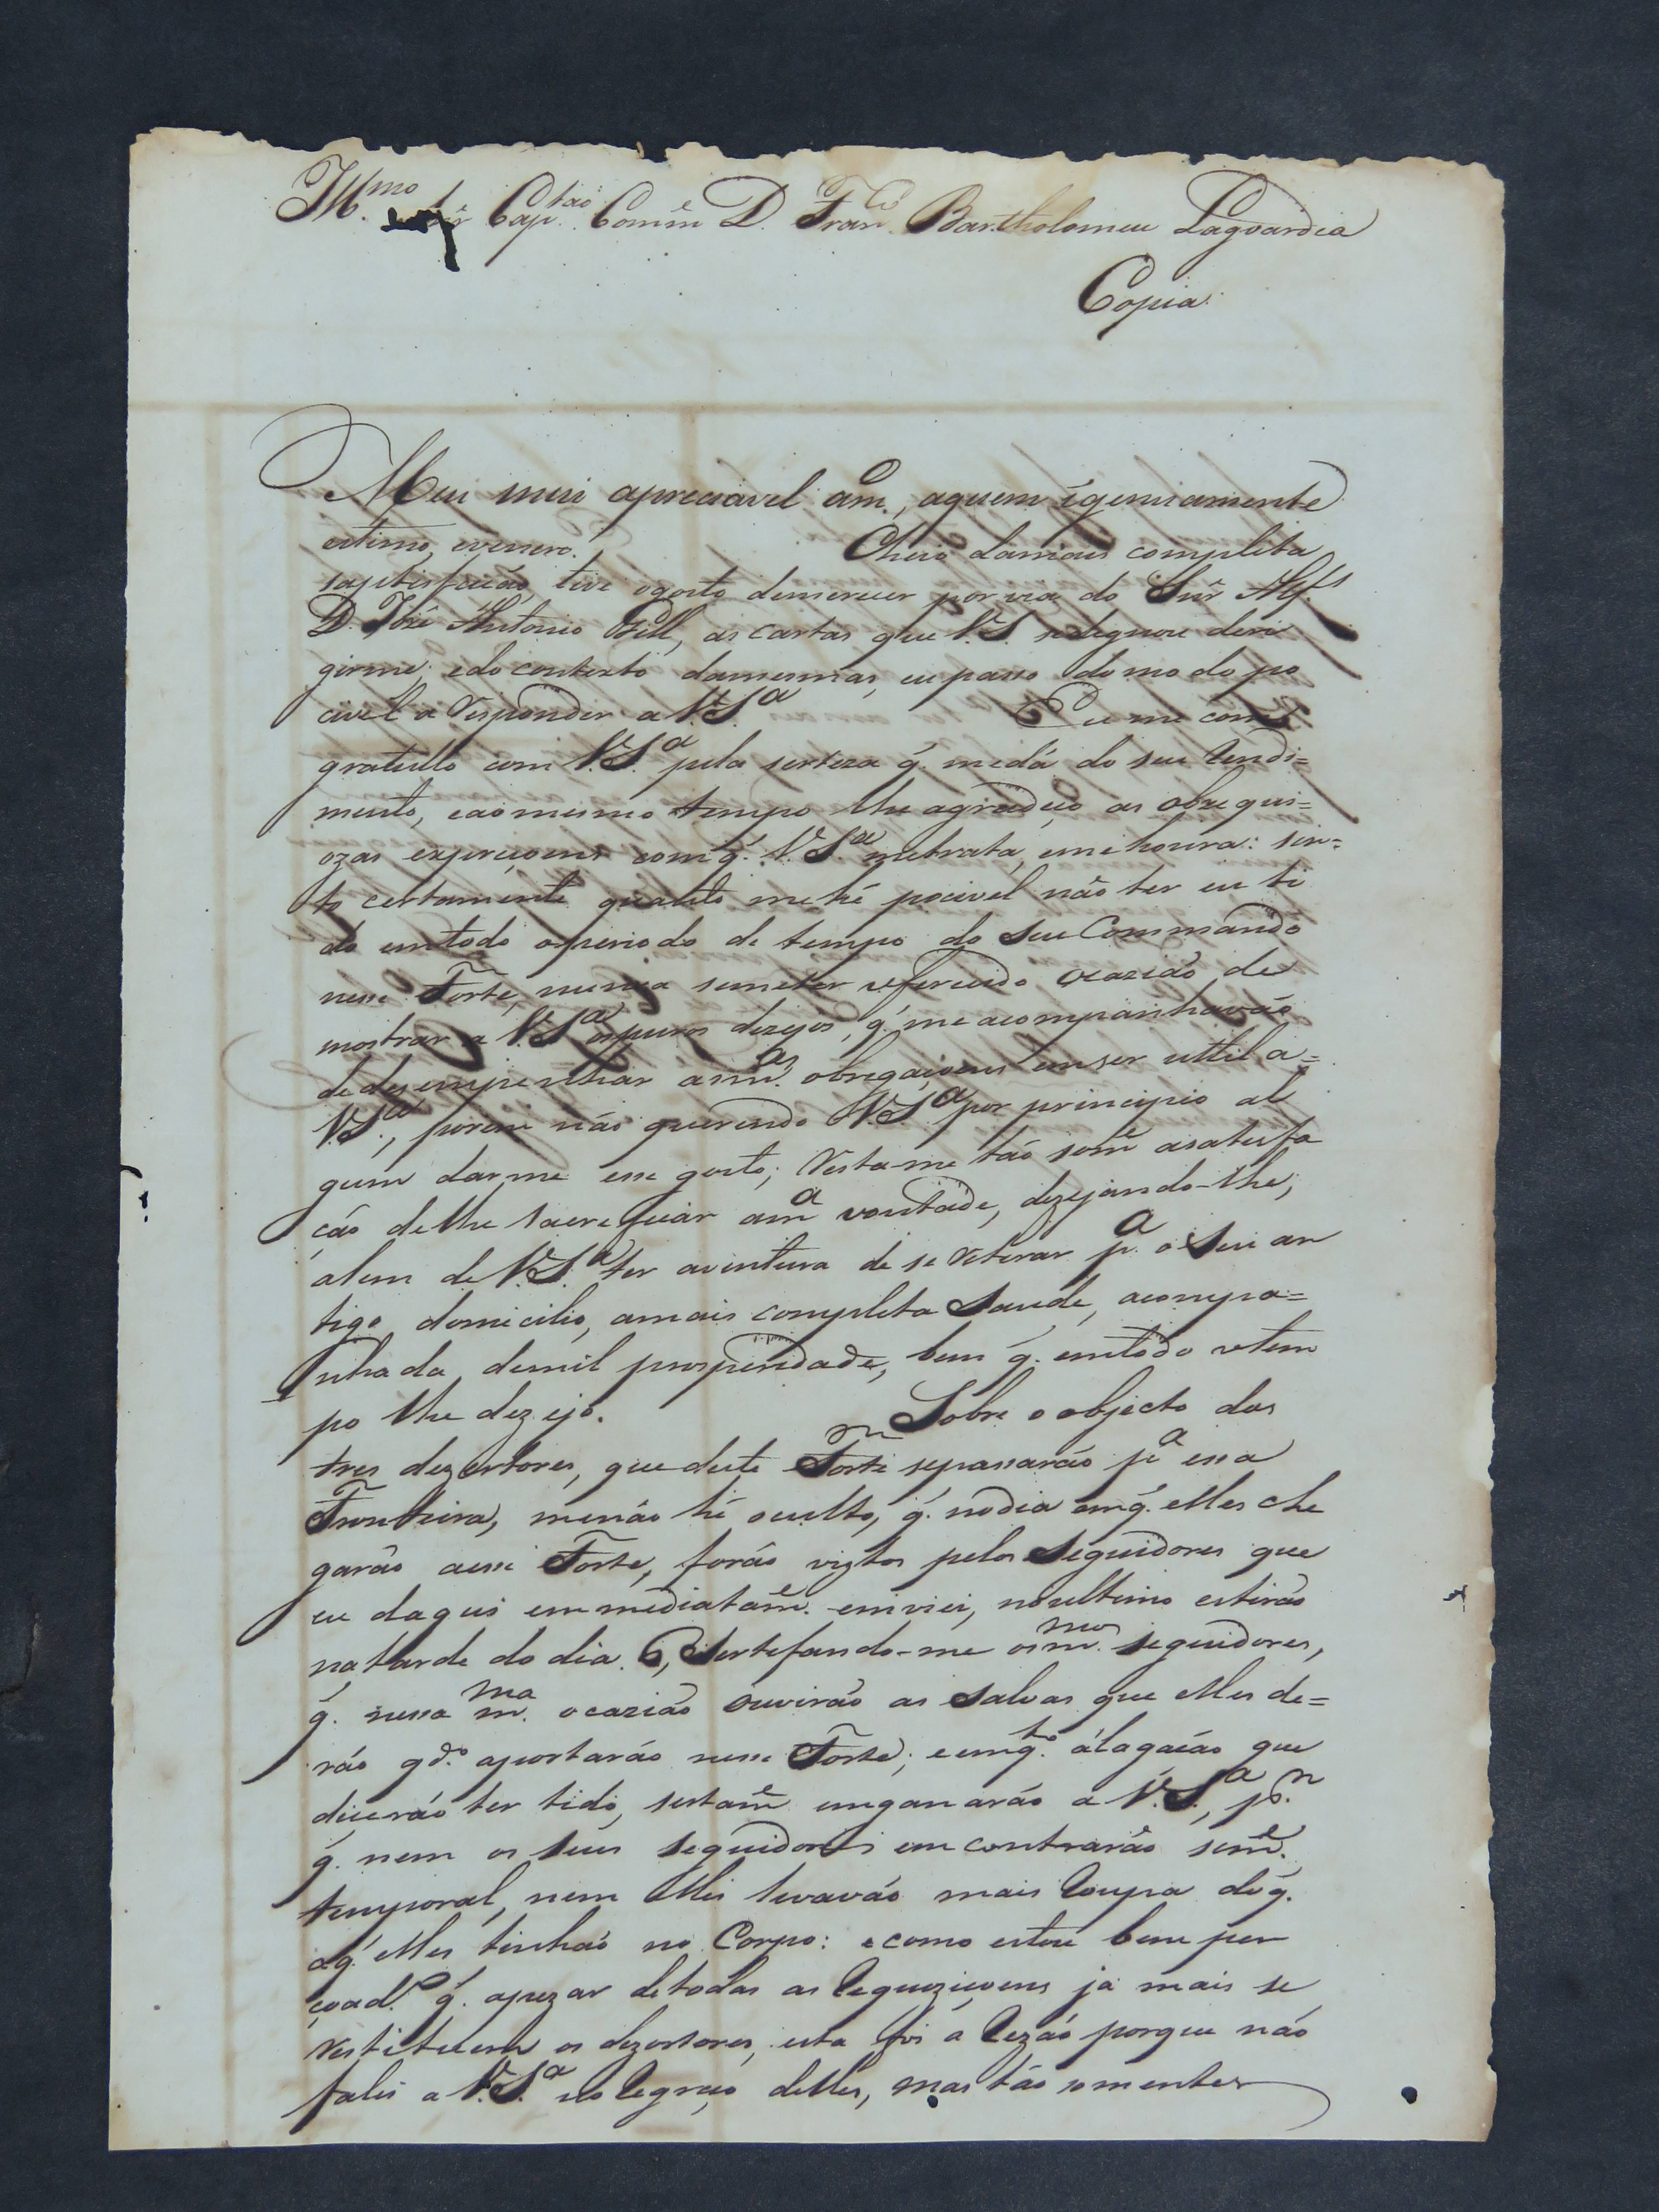 Ill.mo Sñr Cap.tão Comm.e D. Fran.co Bartholomeu Laguardia
Copia.
Meu mui apreciavel am.o, aquem igenuamente
estimo, evenero. Cheio damais completa
saptisfação, tive ogosto demerecer porvia do Sñr Alf.s
D. Jozé Antonio Gill, as cartas que V.S. sedignou deri
girme, edo contexto damesmas, eu passo domodo po
civel a Responder a V.S.a Eu me con=
gratullo com V.S.a pela serteza q̃. medá do seu Rendi=
mento, eaomesmo tempo lhe agradeço as obzequi=
ozas exprecoens com q̃. V.S.a metrata, emehonra: sin=
to certamente quanto mehé pocivel não ter eu ti
do emtodo operiodo de tempo do seu Commando
nesse Forte, nunca semeter oferecido ocazião de
mostrar a V.S.a ospuros dezejos, q̃. me acompanhavão
dedezempenhar asm.as obregaçoens emser uttil a=
V.S.a, porem não querendo V.S.a por principio al
gum darme esse gosto; Resta-me tão som.e asatisfa
ção delhe sacreficar am.a vontade, dezejando-lhe,
alem de V.S.a ter aventura de se Reterar p.a o seu an
tigo domicilio, amais completa Saude, acompa=
nhada demil prosperidade, bem q̃. emtodo otem
po lhe dezejo. Sobre o objecto dos
tres dezertores, que deste Forte sepassarão p.a essa
Fronteira, menão hé oculto, q̃. nodia emq̃. elles che
garão aesse Forte, forão viztos pelos Seguidores que
eu daqui emmediatam.e emviei, noultimo estirão
natarde do dia 6, Sertefando-me osm.mos seguidores,
q̃. nessa m.ma ocazião ouvirão as Salvas que elles de=
rão qd.o aportarão nesse Forte; eemq.to álagação que
dicerão ter tido, sertam.e emganarão a V.S.a, p.r
q̃. nem os seus seguidores emcontrarão sem.e
temporal, nem elles levavão mais Roupa doq̃.
aq̃. elles tinhão no Corpo: ecomo estou bem per
çoad.o q̃. apezar detodas as Requizicoens ja mais se
Restituem os dezertores, esta foi a Rezão porque não
falei a V.S.a no Regreço delles, mas tão somente